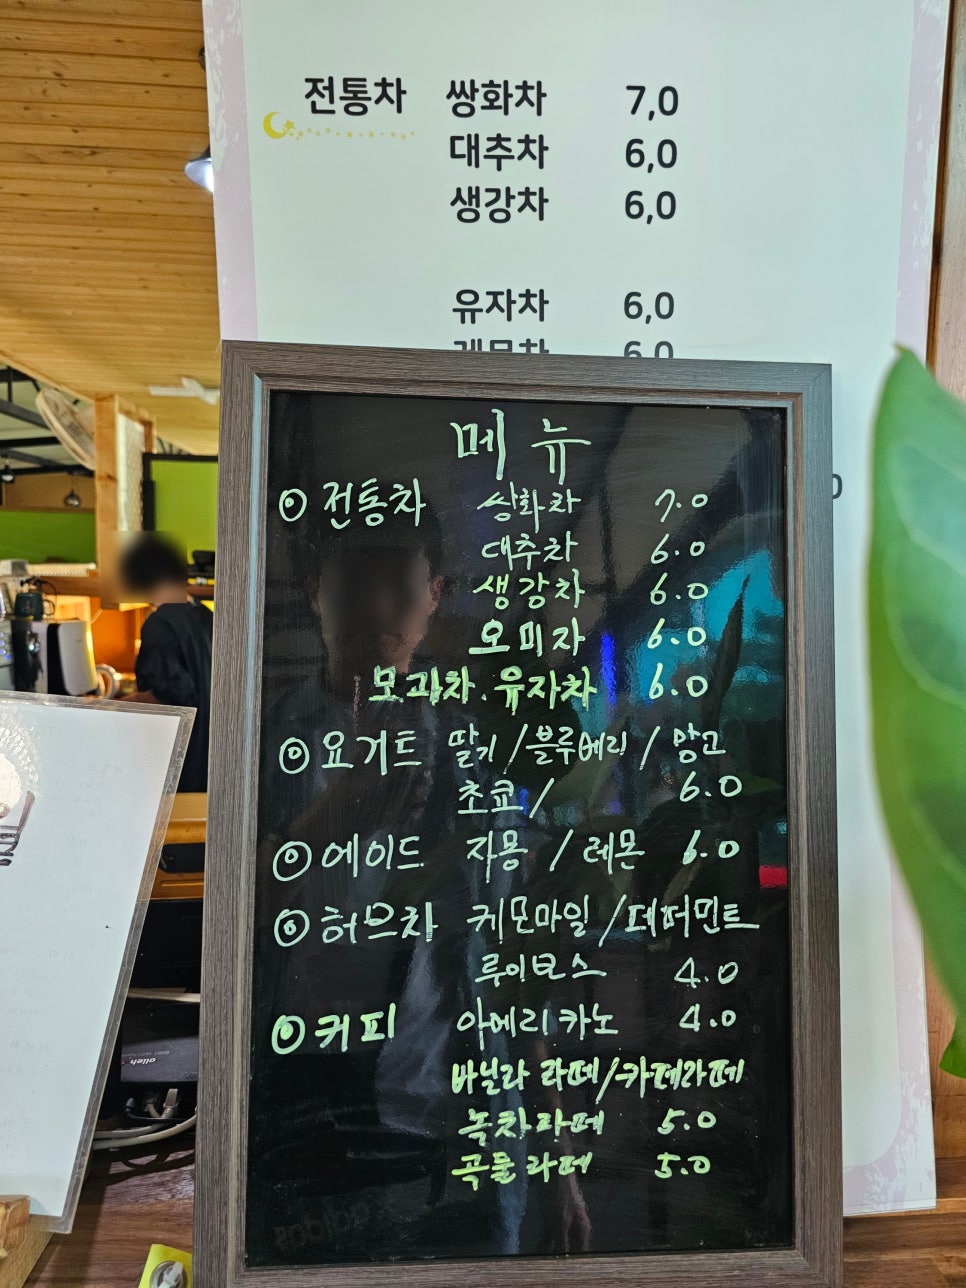 전통차 쌍화차 7,0
대추차 6,0
생강차 6,0
유자차 6,0
레몬차 6,0
메뉴
⊙ 전통차 쌍화차 7.0
대추차 6.0
생강차 6.0
오미자 6.0
모과차.유자차 6.0
⊙ 요거트 딸기/블루베리/망고
초쿄/ 6.0
⊙ 에이드 자몽/레몬 6.0
⊙ 허브차 케모마일/페퍼민트
루이보스 4.0
⊙ 커피 아메리카노 4.0
바닐라 라떼/카페라떼
녹차라떼 5.0
곡물라떼 5.0
olleh